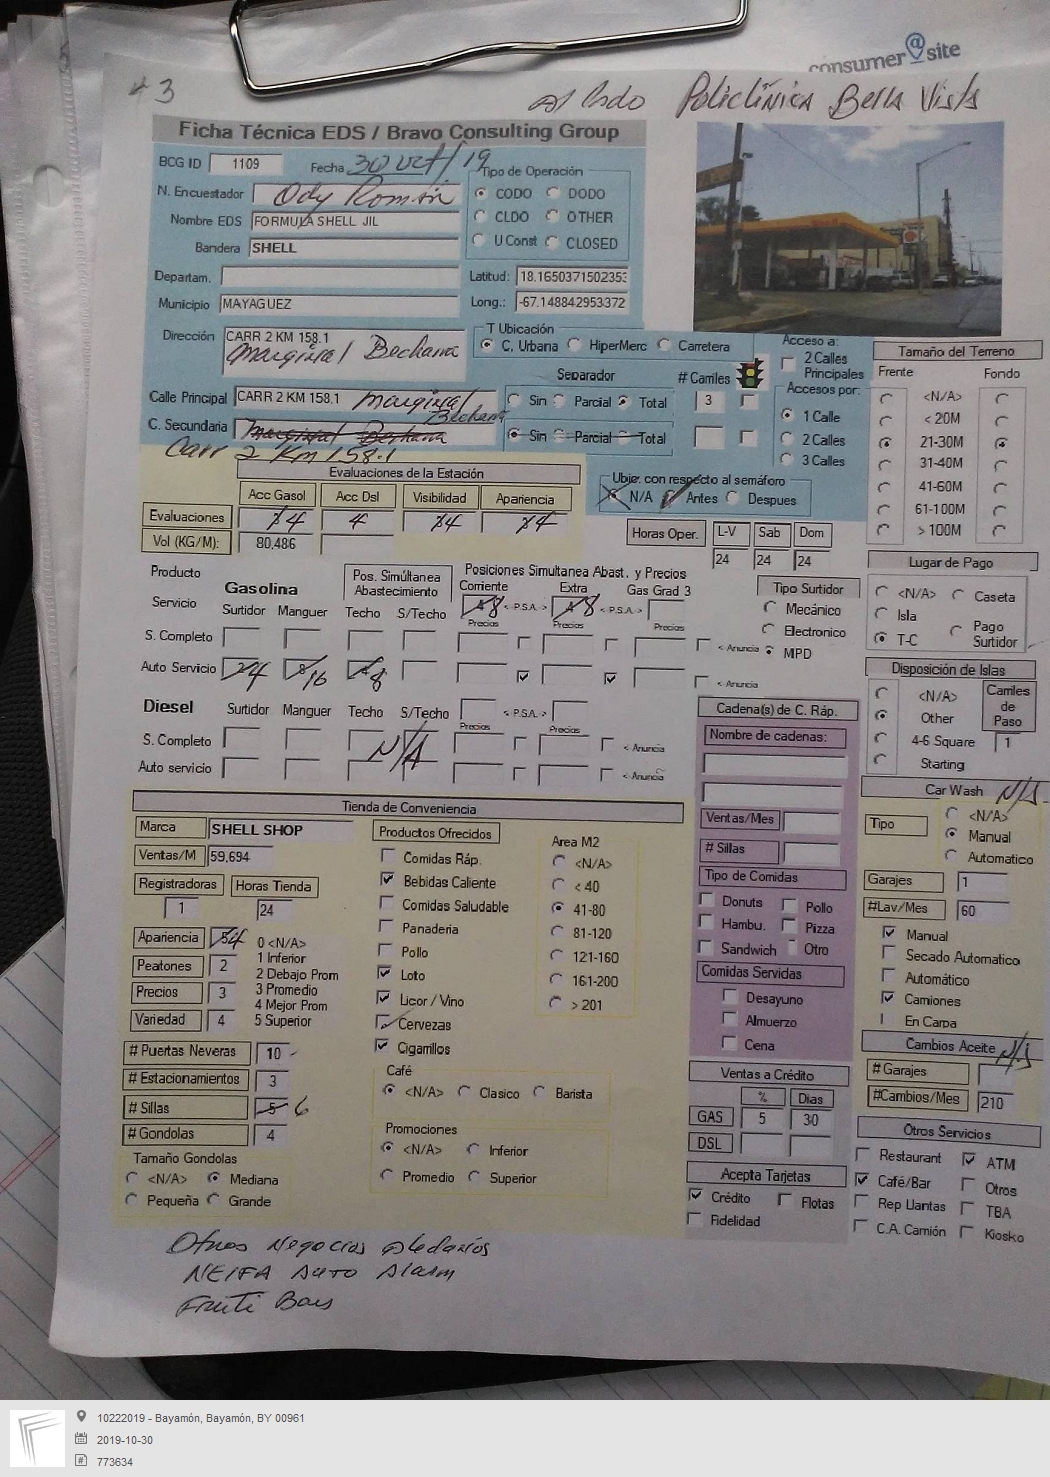 consumer@site
43
al lado Policlínica Bella Vista
Ficha Técnica EDS / Bravo Consulting Group
BCG ID 1109 Fecha 30 oct/19
N. Encuestador Ody Román
Nombre EDS FORMULA SHELL JIL
Bandera SHELL
Departam.
Municipio MAYAGUEZ
Dirección CARR 2 KM 158.1
Marginal Bechara
Calle Principal CARR 2 KM 158.1 Marginal Bechara
C. Secundaria Marginal Bechara
Carr 2 Km 158.1
Tipo de Operación
CODO DODO
CLDO OTHER
U Const CLOSED
Latitud: 18.1650371502353
Long.: -67.148842953372
T Ubicación
C. Urbana HiperMerc Carretera
Separador
Sin Parcial Total
Sin Parcial Total
# Carriles
3
Acceso a:
2 Calles Principales
Accesos por:
1 Calle
2 Calles
3 Calles
Ubic. con respecto al semáforo
N/A Antes Despues
Tamaño del Terreno
Frente Fondo
<N/A>
< 20M
21-30M
31-40M
41-60M
61-100M
> 100M
Evaluaciones de la Estación
Acc Gasol Acc Dsl Visibilidad Apariencia
Evaluaciones 4 4 4 4
Vol (KG/M): 80,486
Horas Oper. L-V Sab Dom
24 24 24
Lugar de Pago
<N/A> Caseta
Isla
T-C Pago Surtidor
Producto Gasolina
Pos. Simúltanea Abastecimiento
Posiciones Simultanea Abast. y Precios
Corriente Extra Gas Grad 3
8 <-P.S.A.-> 8 <-P.S.A.->
Precios Precios Precios
Servicio Surtidor Manguer Techo S/Techo
S. Completo <-Anuncia
Auto Servicio 4 8/16 8 <-Anuncia
Tipo Surtidor
Mecánico
Electronico
MPD
Diesel Surtidor Manguer Techo S/Techo <-P.S.A.->
Precios Precios
S. Completo <-Anuncia
N/A
Auto servicio <-Anuncia
Disposición de Islas
<N/A>
Other
4-6 Square
Starting
Carriles de Paso
1
Cadena(s) de C. Ráp.
Nombre de cadenas:
Ventas/Mes
# Sillas
Tipo de Comidas
Donuts Pollo
Hambu. Pizza
Sandwich Otro
Comidas Servidas
Desayuno
Almuerzo
Cena
Car Wash N/A
Tipo
<N/A>
Manual
Automatico
Garajes 1
#Lav/Mes 60
Manual
Secado Automatico
Automático
Camiones
En Carpa
Cambios Aceite N/A
# Garajes
#Cambios/Mes 210
Tienda de Conveniencia
Marca SHELL SHOP
Ventas/M 59,694
Registradoras Horas Tienda
1 24
Apariencia 4
Peatones 2
Precios 3
Variedad 4
0 <N/A>
1 Inferior
2 Debajo Prom
3 Promedio
4 Mejor Prom
5 Superior
# Puertas Neveras 10
# Estacionamientos 3
# Sillas 5 6
# Gondolas 4
Tamaño Gondolas
<N/A> Mediana
Pequeña Grande
Productos Ofrecidos
Comidas Ráp.
Bebidas Caliente
Comidas Saludable
Panaderia
Pollo
Loto
Licor / Vino
Cervezas
Cigarrillos
Area M2
<N/A>
< 40
41-80
81-120
121-160
161-200
> 201
Café
<N/A> Clasico Barista
Promociones
<N/A> Inferior
Promedio Superior
Ventas a Crédito
% Dias
GAS 5 30
DSL
Acepta Tarjetas
Crédito Flotas
Fidelidad
Otros Servicios
Restaurant ATM
Café/Bar Otros
Rep Llantas TBA
C.A. Camión Kiosko
Otros Negocios aledaños
NEIFA Auto Alarm
Fruti Bars
10222019 - Bayamón, Bayamón, BY 00961
2019-10-30
773634